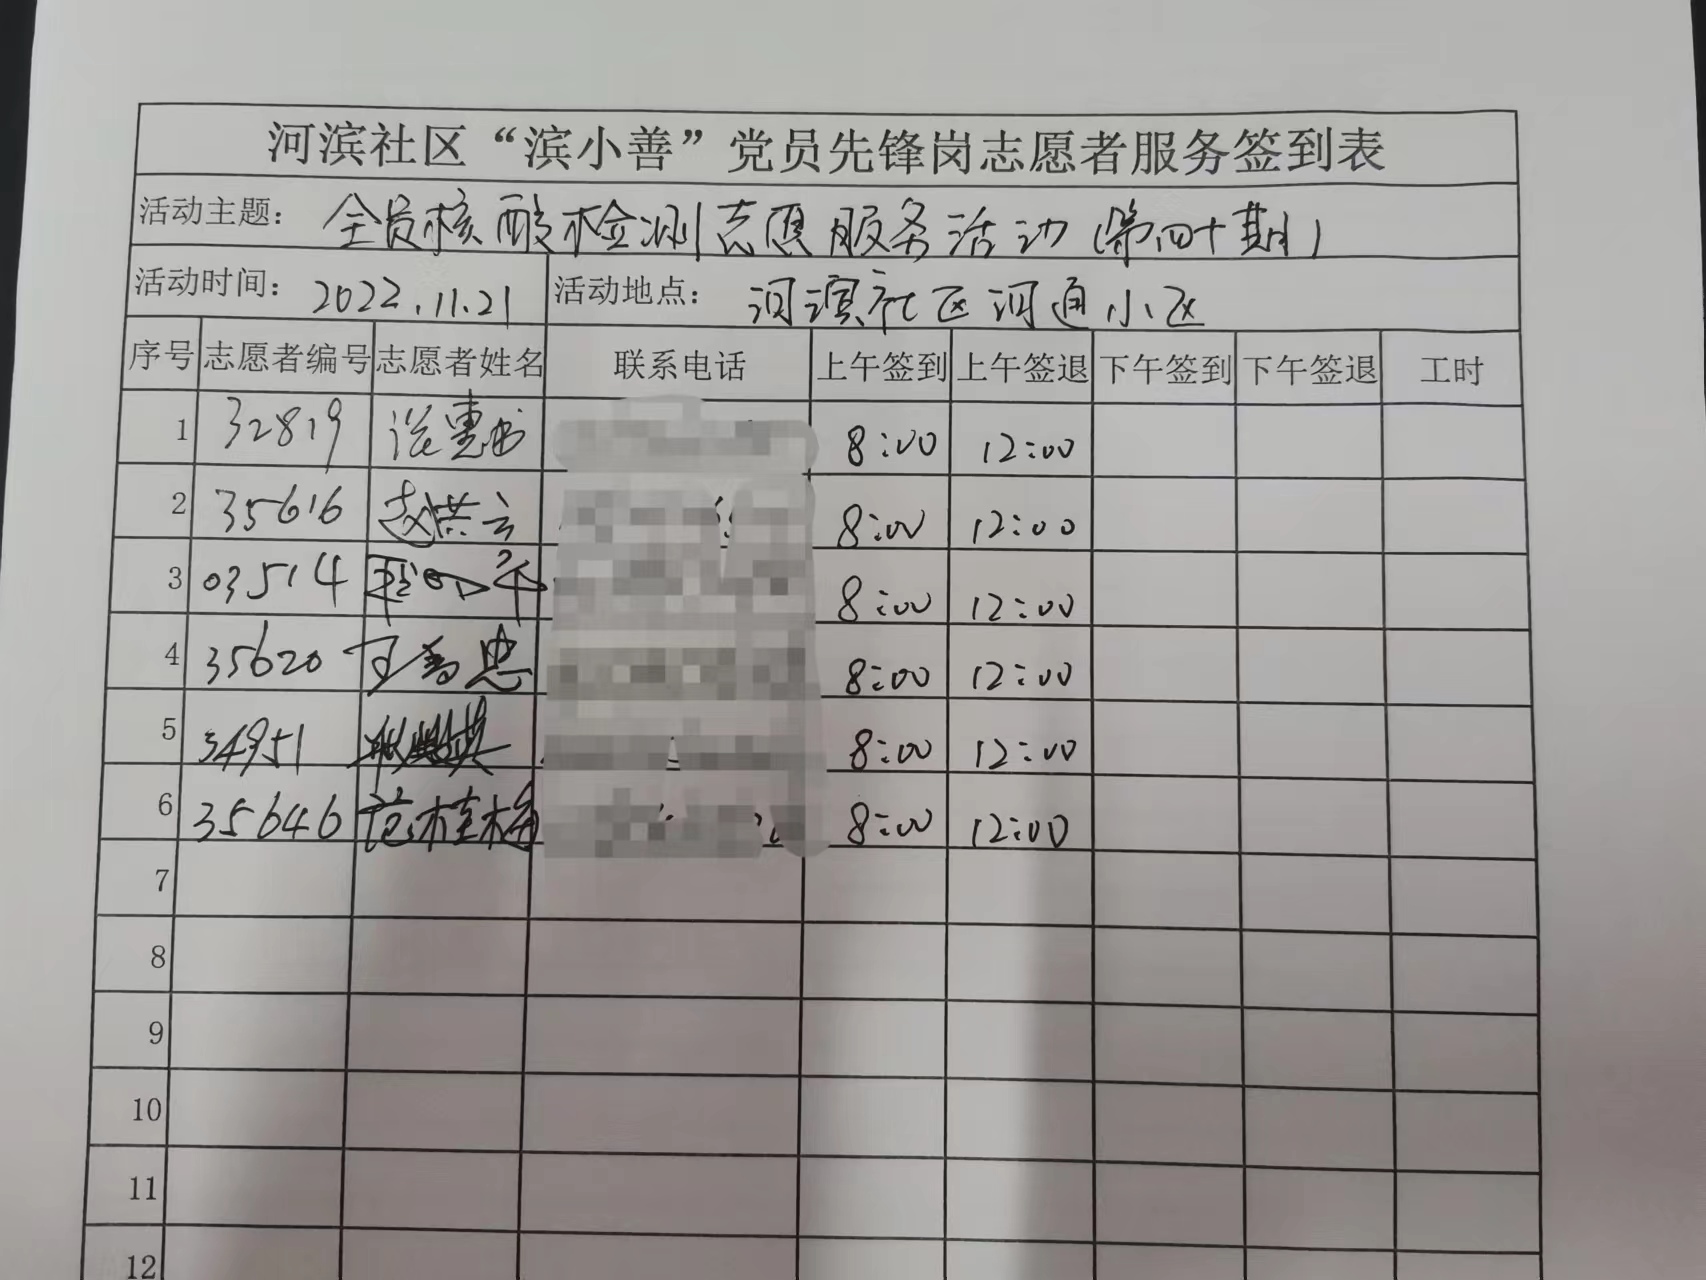 河滨社区“滨小善”党员先锋岗志愿者服务签到表
活动主题： 全员核酸检测志愿服务活动（第四十期）
活动时间： 2022.11.21 活动地点： 河滨社区河通小区
序号 志愿者编号 志愿者姓名 联系电话 上午签到 上午签退 下午签到 下午签退 工时
1 32819 8:00 12:00
2 35616 赵洪云 8:00 12:00
3 03514 8:00 12:00
4 35620 8:00 12:00
5 34951 8:00 12:00
6 35646 范桂梅 8:00 12:00
7
8
9
10
11
12